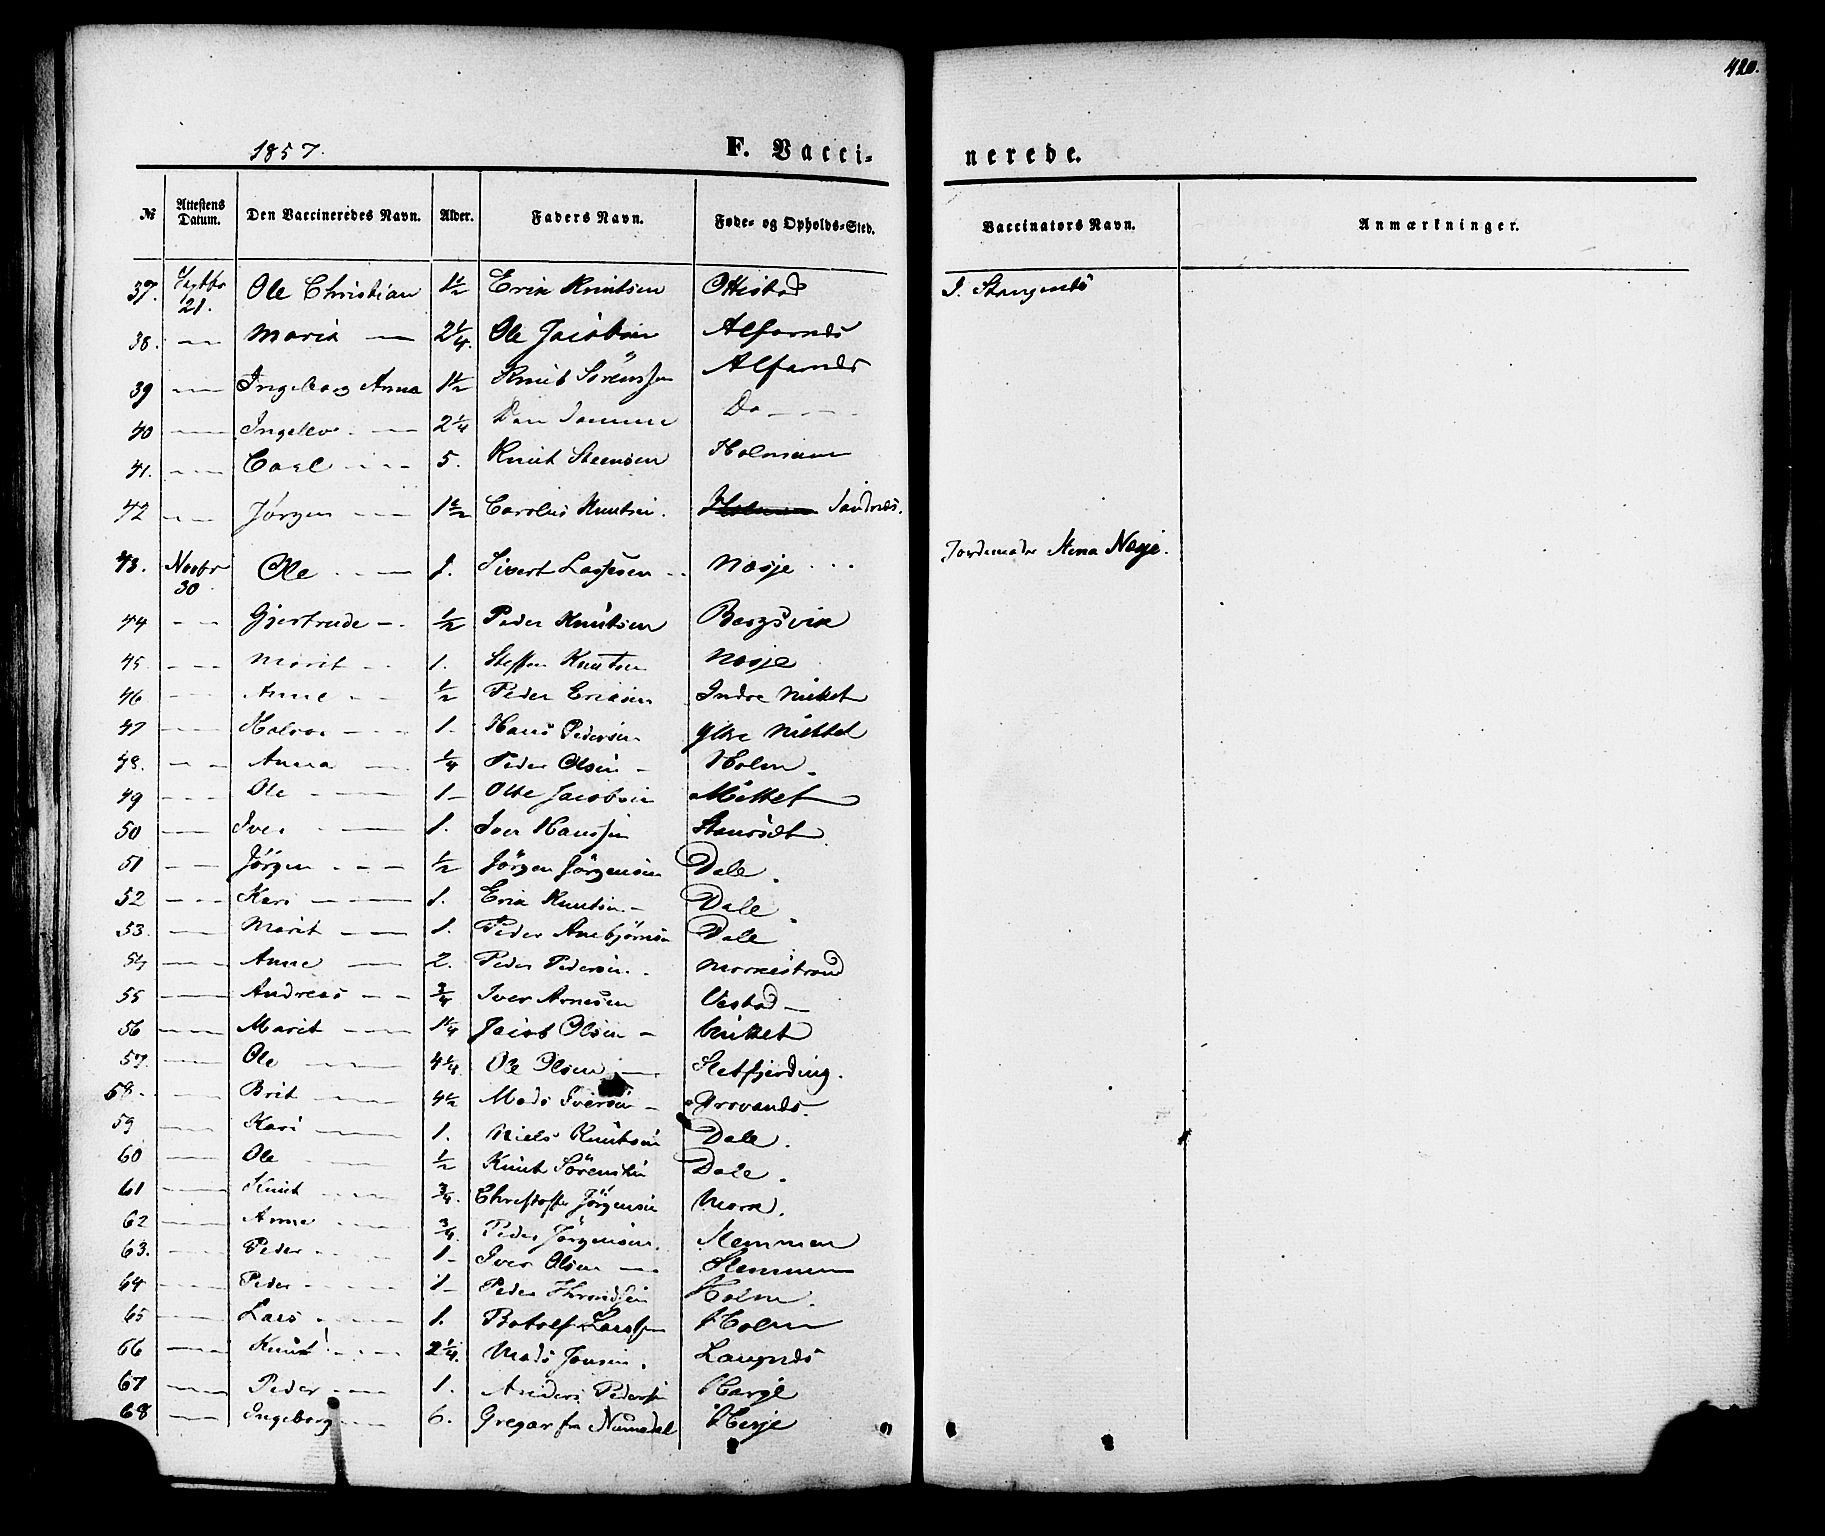 420.
1857.
F. Vacci-
nerede.
№ Attestens Datum. Den Vaccineredes Navn. Alder. Faders Navn. Føde- og Opholds-Sted. Vaccinators Navn. Anmærkninger.
37. Septbr 21. Ole Christian 1½ Erik Knutsen Ottestad J. Stangenes
38. — Marit — 2¼. Ole Jacobsen Alfarnes
39 — Ingeborg Anna 1½ Knut Sörenssen Alfarnes
40 — — 2¼ Den Samme Do — — —
41. — Carl — 5. Knut Steensen Holmem
42 — Jørgen — 1½ Carolus Knutsen. Sandnes.
43. Novbr 30 Ole — 1. Sivert Lassesen Næsje Jordemoder Stena Næsje.
44 — Gjertrude — ½ Peder Knutsen Bergsvik
45. — Marit — 1. Steffen Knutsen Næsje
46 — Anne — ½ Peder Ericsen Indre Mittet
47 — Halvor — 1. Hans Pedersen Ytre Mittet
48. — Anna — ¼ Peder Olsen — Holm.
49 — Ole — 1 — Otte Jacobsen Mittet
50 — Iver — 1. Iver Hanssen
51 — Jörgen — ½ Jörgen Jörgensen Dale.
52 — Kari — 1. Erik Knutsen — Dale.
53. — Marit — 1. Peder Anebjörnsen Dale
54 — Anne — 2. Peder Pedersen. Morkestrand
55 — Andreas — ¾ Iver Arnesen Vestad —
56 — Marit — 1¼ Jacob Olsen — Mittet
57. — Ole — 4¼ Ole Olsen — Sletfjerding.
58. — Brit — 4½ Mads Iversen — Grovanes.
59 — Kari — 1. Niels Knutsen Dale.
60 — Ole — ½ Knut Sörensen Dale.
61 — Knut — ¾. Christoffer Jörgensen Mork.
62 — Anne — ¾. Peder Jörgensen. Hemmen
63. — Peder — 1 — Iver Olsen — Hemmen
64 — Peder — 1 — Peder Throndsen Holm.
65 — Lars — 1. Botolf Larssen Holm
66 — Knut — 2¼. Mads Jonsen. Langnes
67 — Peder — 1. Anders Pedersen
68 — Ingeborg — 6. Gregar fra Numedal